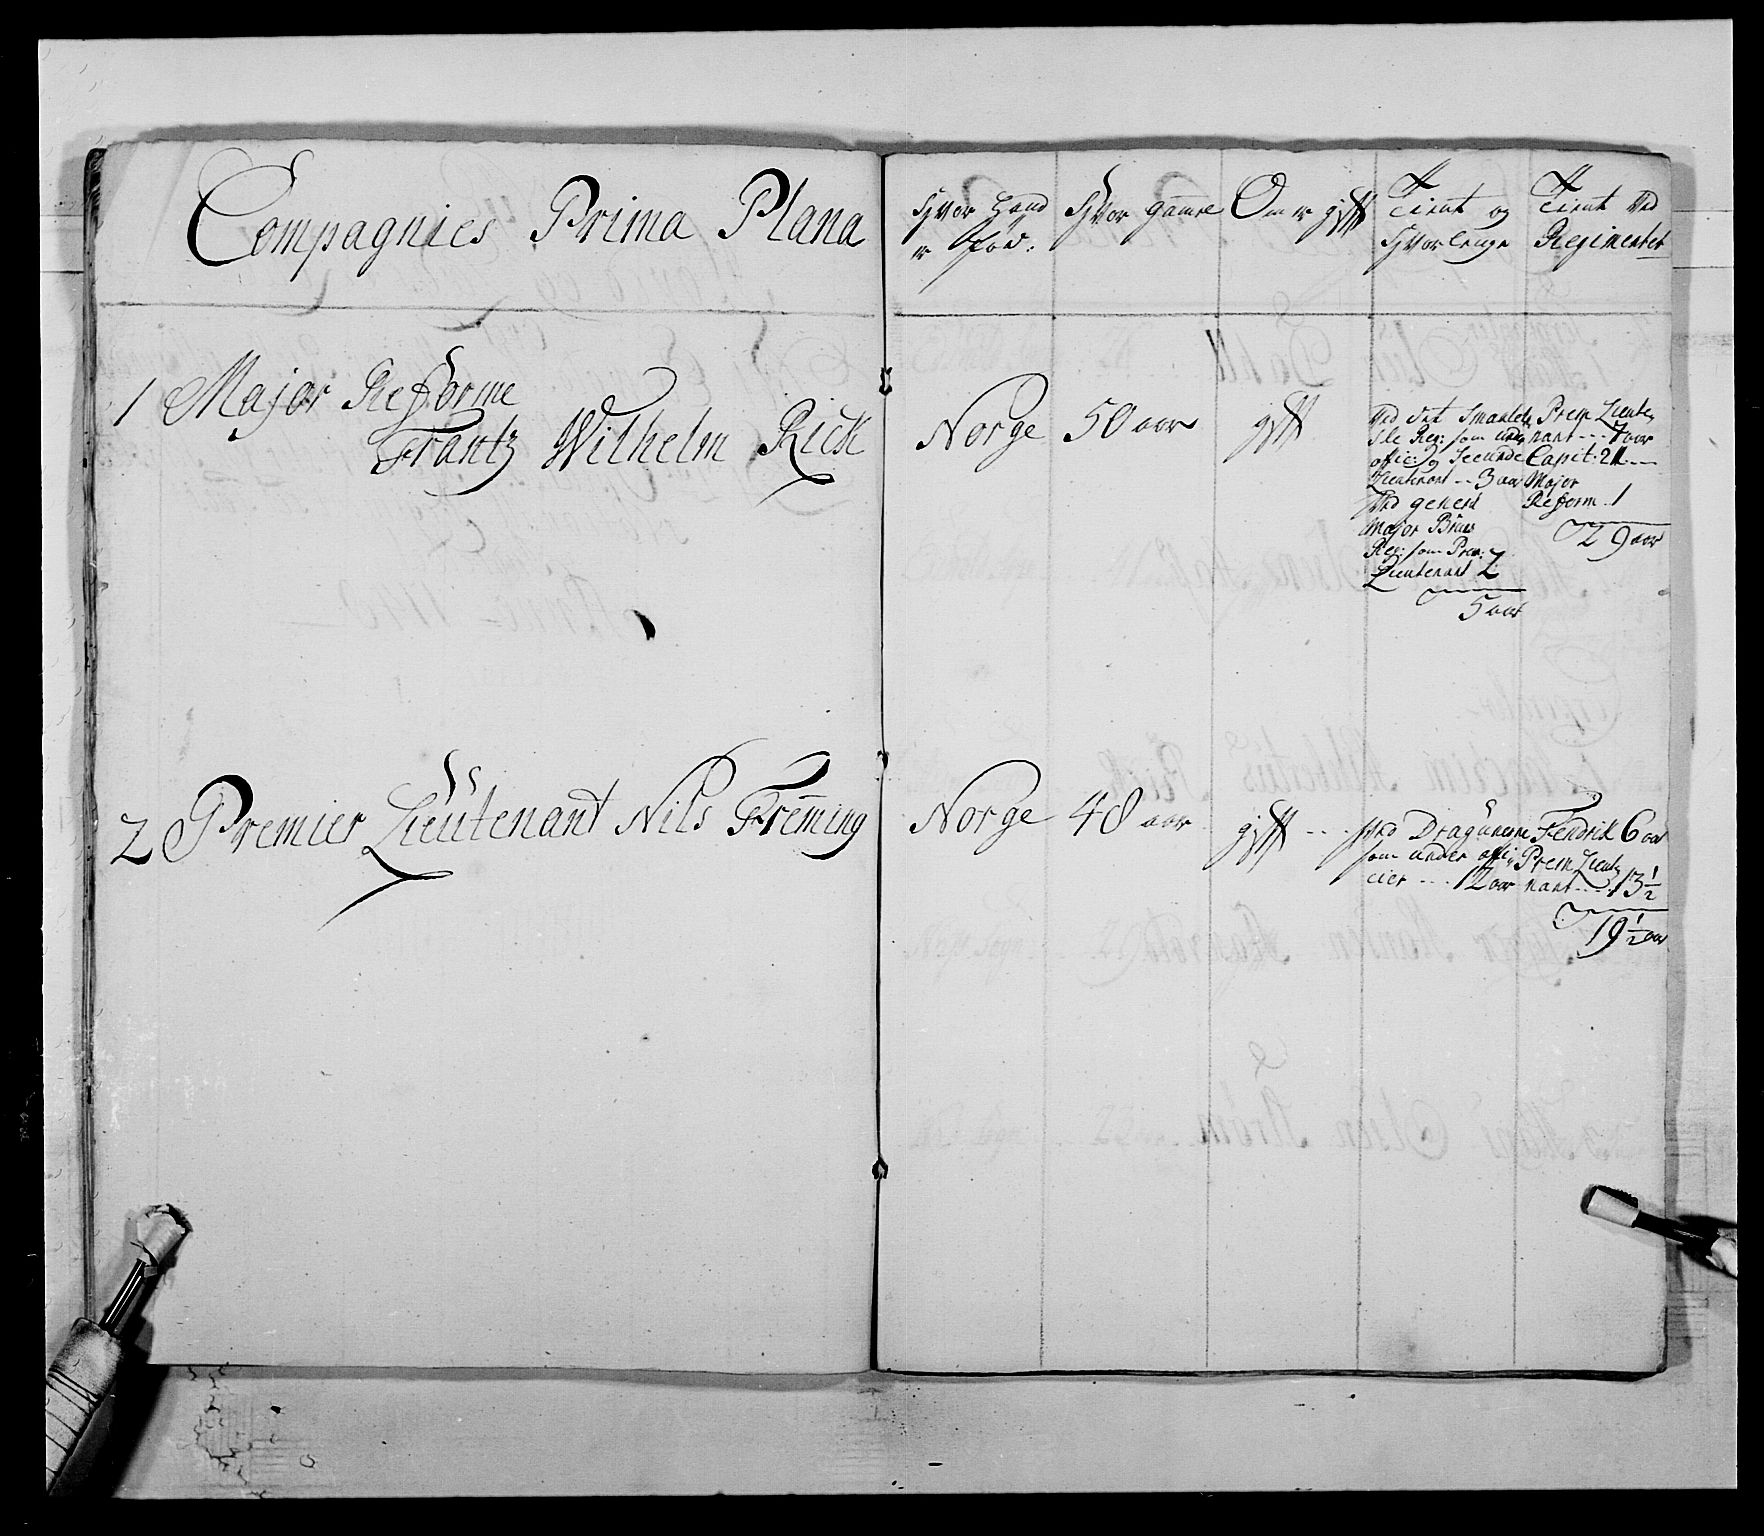 Compagnies Prima Plana
Hvor Land
er fød:
Hvor gamle
Om er gift
Tient og
Hvorlenge
Tient Ved
Regimentet
1 Major Refforme
Frantz Wilhelm Rick
Norge
50 aar
gift
Ved det Smaalehn
Sle Reg: som under
offic: og Secunde
Lieutenant -- 3 aar
Ved general
Major Brües
Reg: som Prem:
Lieutenant 2
5 aar
Prem Lieute
nant --- 7 aar
Capit: 21 ---
Major
Refform . 1
29 aar
2 Premier Lieutenant Nils Fremming
Norge
48 aar
gift ---
Ved Dragunerne
som under offi
cier --- 12 aar
Fendrik 6 aar
Prem Lieute
nant --- 13 1/2
19 1/2 aar